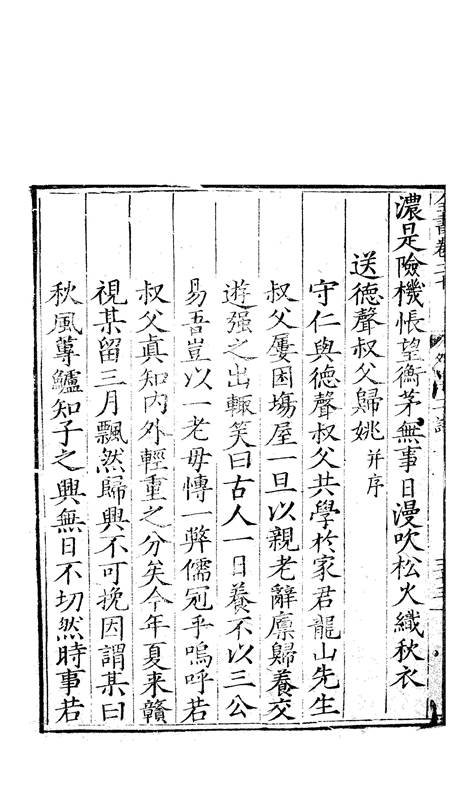 全書卷二十
濃是險機悵望衡茅無事日漫吹松火織秋衣
送德聲叔父歸姚并序
守仁與德聲叔父共學於家君龍山先生
叔父屢困塲屋一旦以親老辭廪歸養交
遊强之出輒笑曰古人一日養不以三公
易吾豈以一老母慱一弊儒冠乎嗚呼若
叔父真知内外輕重之分矣今年夏来贛
視某留三月飄然歸興不可挽因謂某曰
秋風蓴鱸知子之興無日不切然時事若